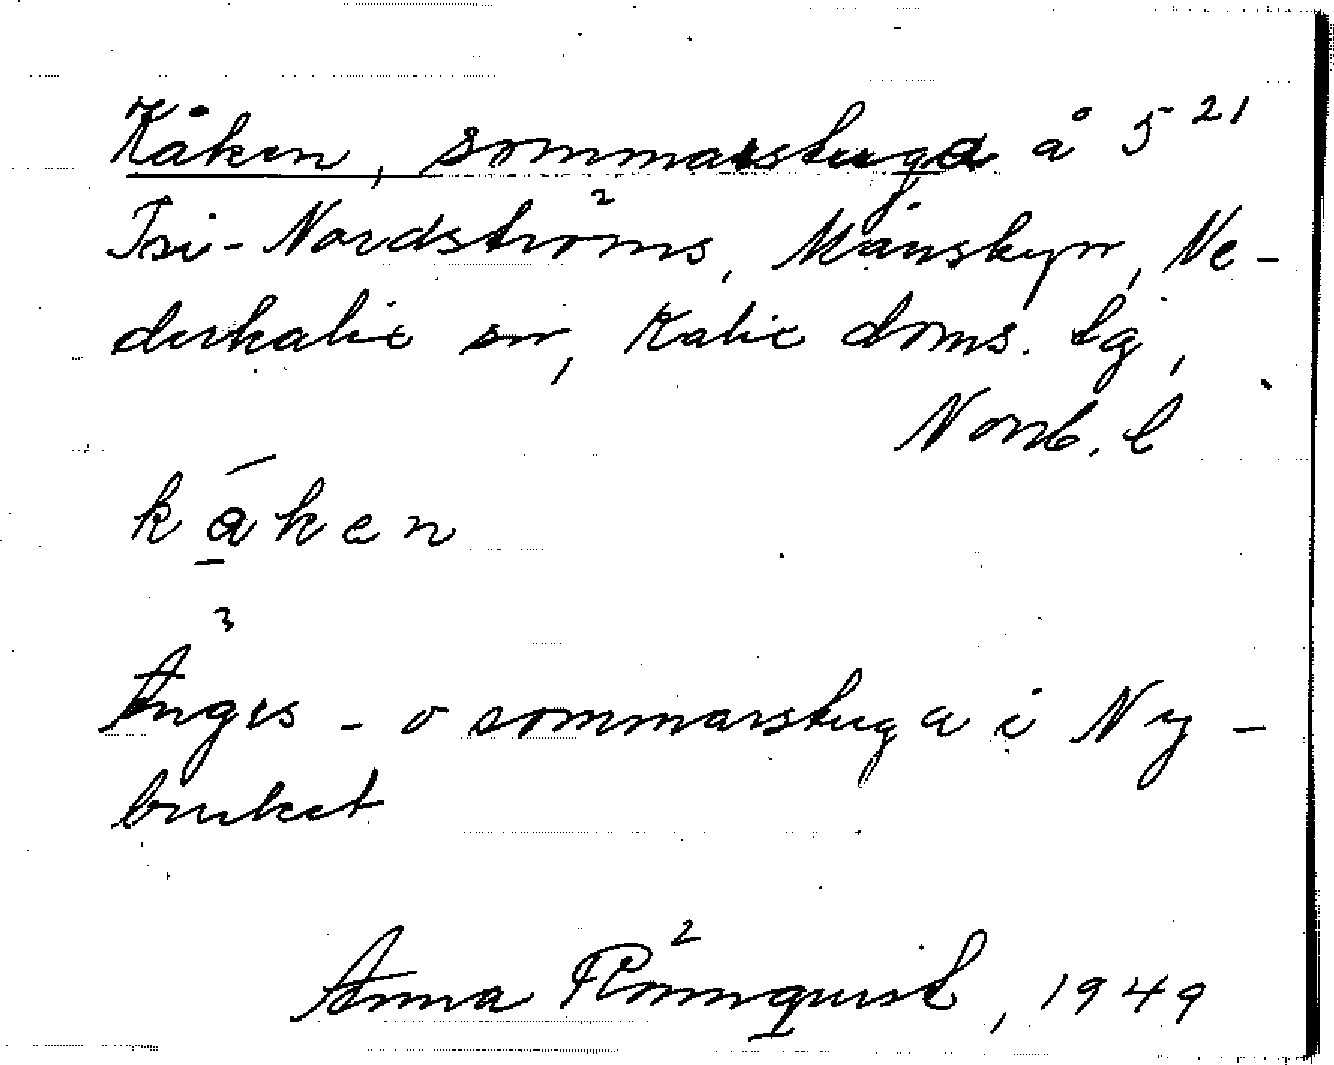 Kåken, sommarstuga å 5²¹
Isi-Nordströms, Månsbyn, Ne-
derkalix sn, Kalix doms. lg,
Norrb. l
kåken
Ånges - o sommarstuga i Ny-
bruket
Anna Rönnqvist, 1949